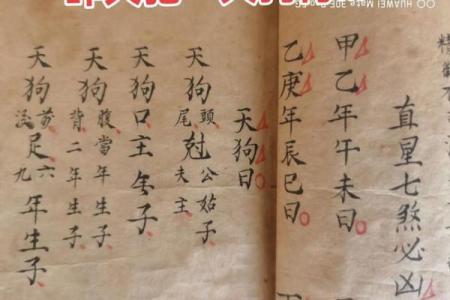 HUAWEI Mate 30E Pro 5G
直星七煞必凶
甲乙年午未日
乙庚年辰巳日
天狗日
天狗頭尾尅公姑子夫主
天狗口主子
天狗腹背當年生子二年生子
天狗足六九年生子